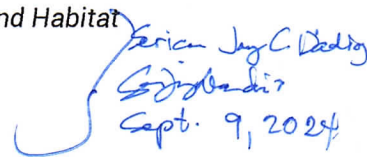 nd Habitat
Serican Jay C. Dadiz
Sept. 9, 2024